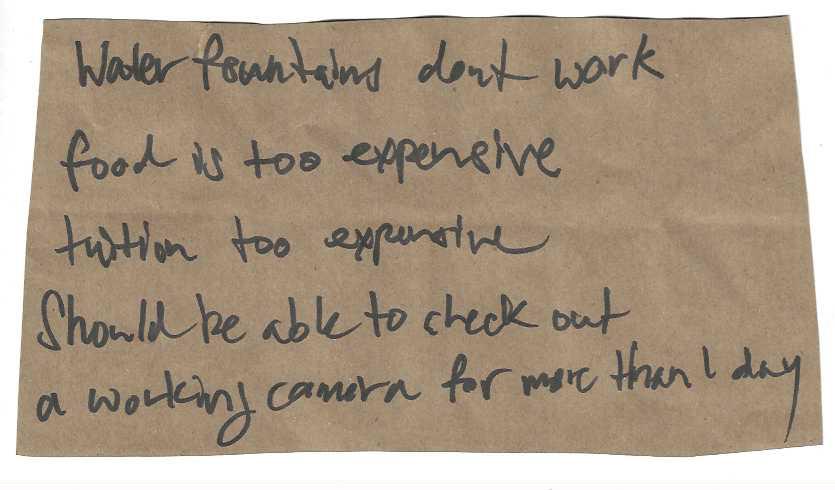 Water fountains dont work
food is too expensive
tuition too expensive
Should be able to check out
a working camera for more than 1 day